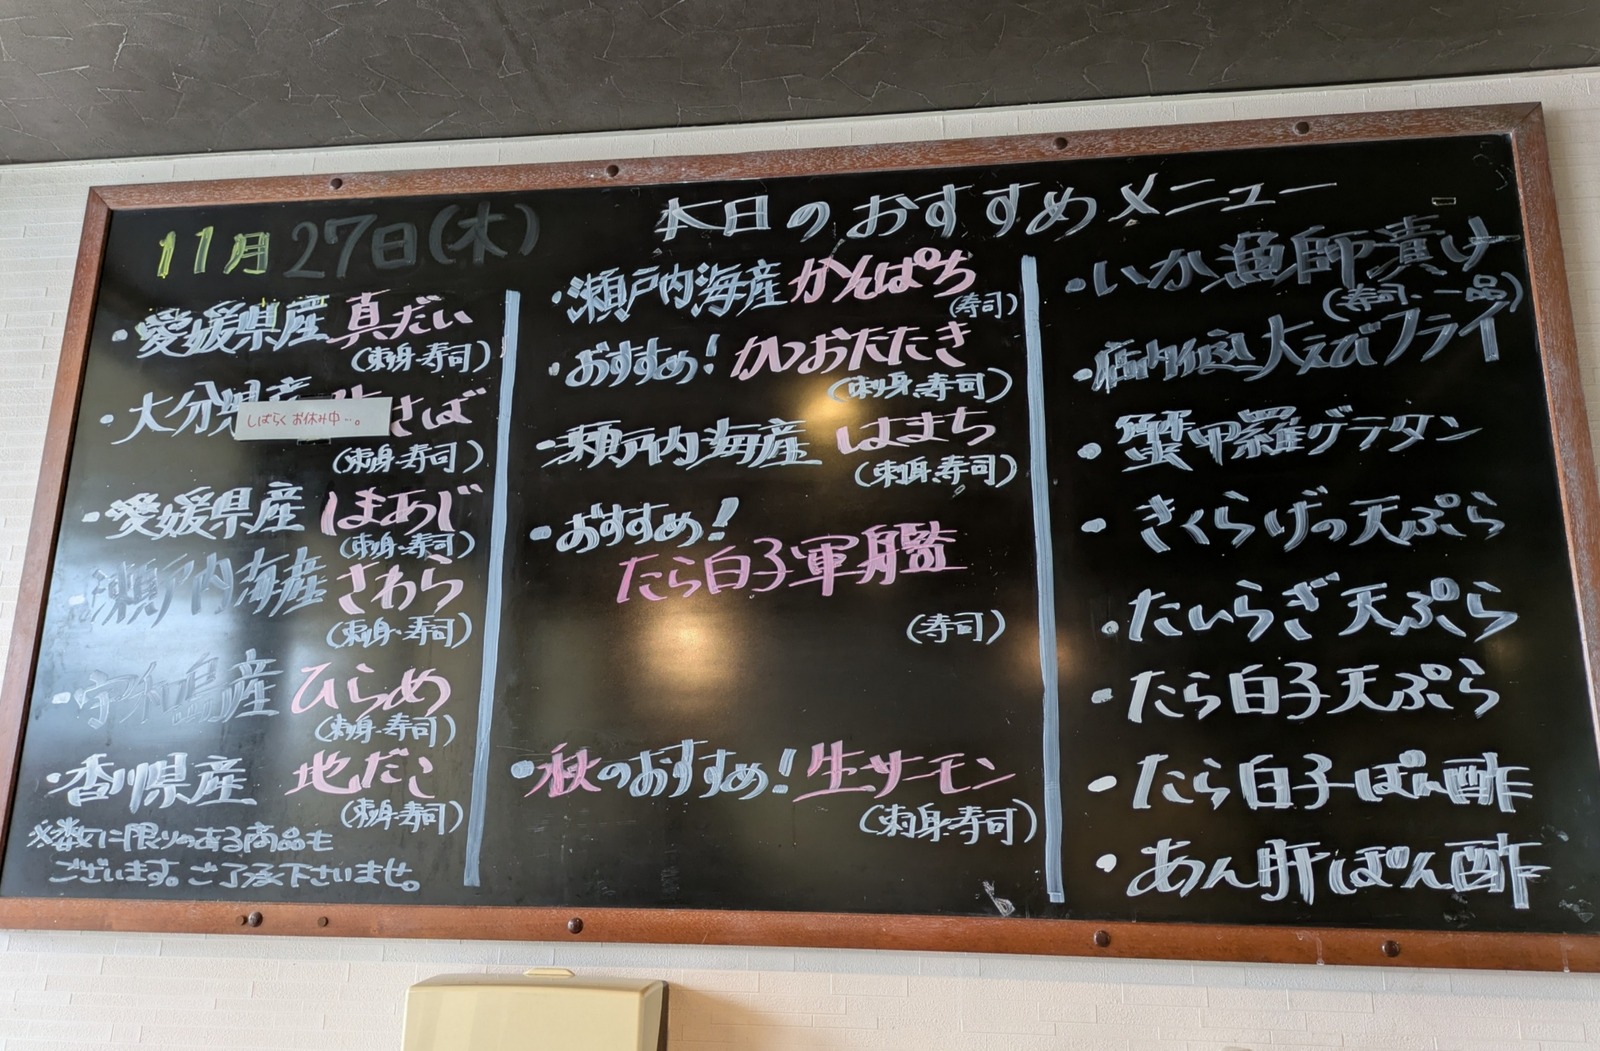 11月27日(木)
本日のおすすめメニュー
・愛媛県産真だい
(刺身・寿司)
・大分県産 さば
しばらくお休み中…。
(刺身・寿司)
・愛媛県産 しまあじ
(刺身・寿司)
・瀬戸内海産 さわら
(刺身・寿司)
・宇和島産 ひらめ
(刺身・寿司)
・香川県産 地だこ
(刺身・寿司)
※数に限りのある商品も
ございます。ご了承下さいませ。
・瀬戸内海産かんぱち
(寿司)
・おすすめ!かつおたたき
(刺身・寿司)
・瀬戸内海産 はまち
(刺身・寿司)
・おすすめ!
たら白子軍艦
(寿司)
・秋のおすすめ!生サーモン
(刺身・寿司)
・いか漁師漬け
(寿司、一品)
・店内仕込大えびフライ
・蟹甲羅グラタン
・きくらげの天ぷら
・たいらぎ天ぷら
・たら白子天ぷら
・たら白子ぽん酢
・あん肝ぽん酢